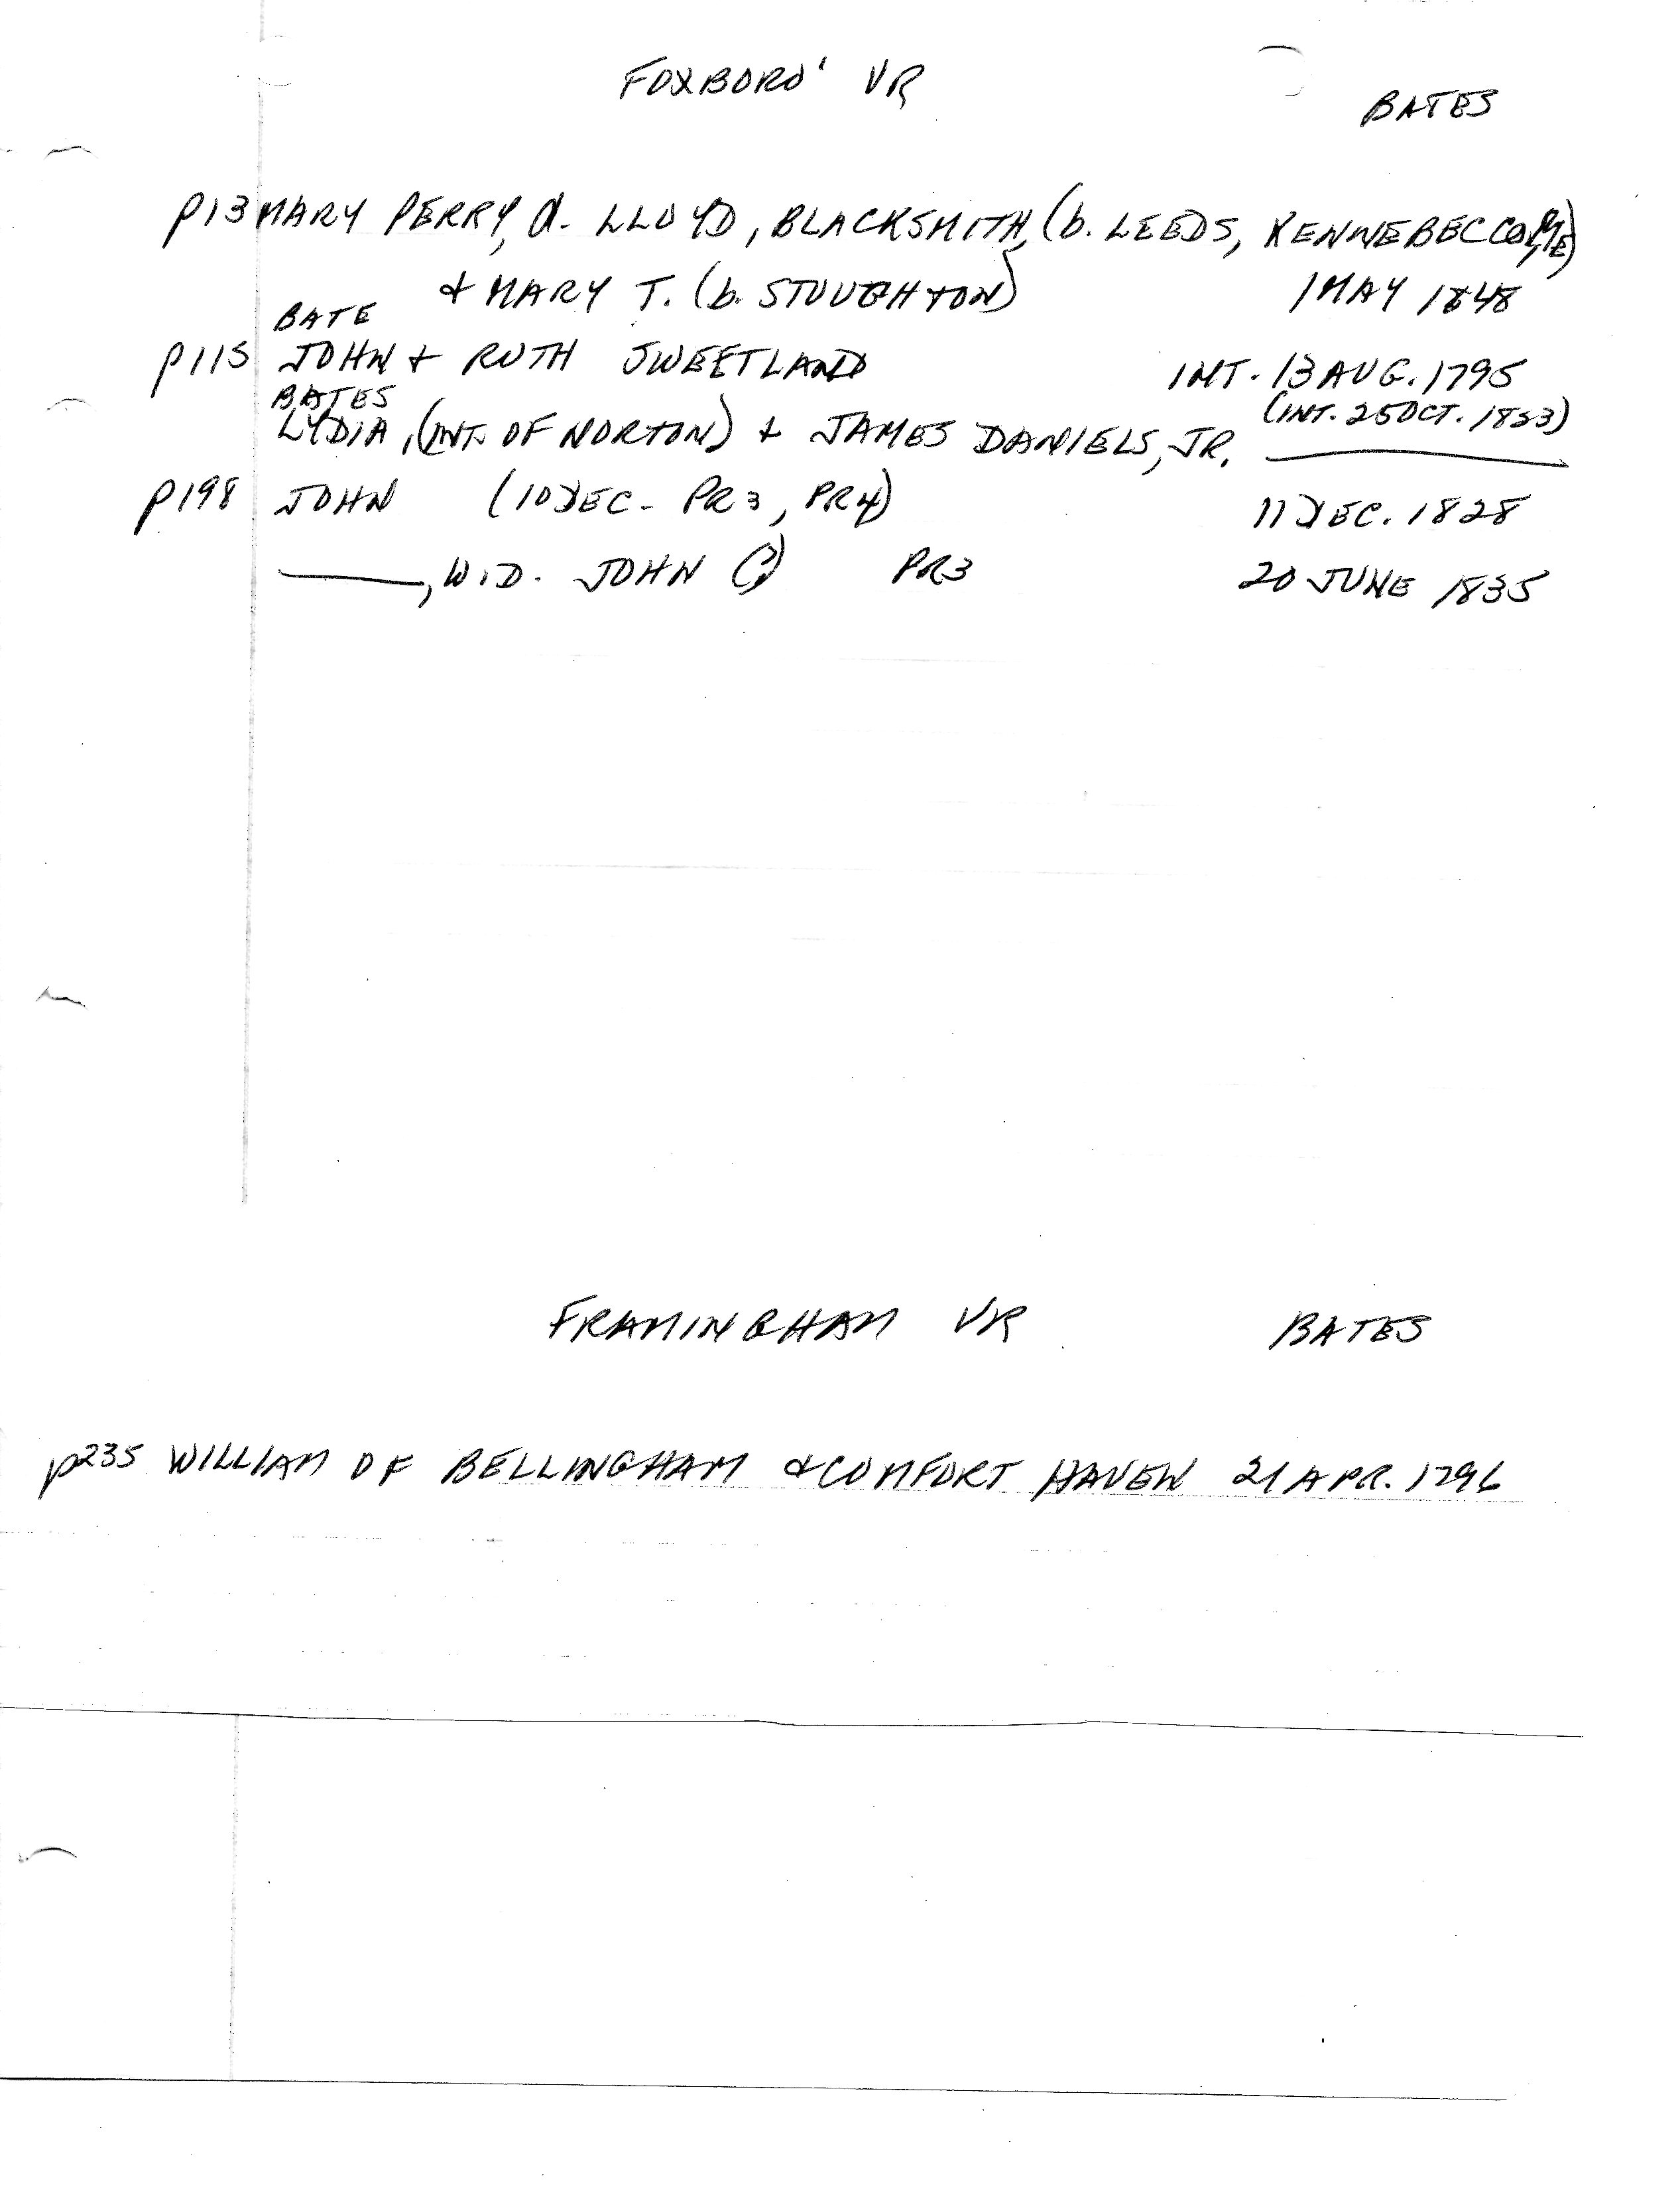 FOXBORO' VR
BATES
p13 MARY PERRY, d. LLOYD, BLACKSMITH, (b. LEEDS, KENNEBEC CO, ME)
+ MARY T. (b. STOUGHTON) 1 MAY 1848
BATE
p115 JOHN + RUTH SWEETLAND INT. 13 AUG. 1795
BATES
LYDIA, (INT. OF NORTON) + JAMES DANIELS, JR. (INT. 25 OCT. 1833)
p198 JOHN (10 DEC. PR3, PR4) 11 DEC. 1828
———, WID. JOHN (?) PR3 20 JUNE 1835
FRAMINGHAM VR BATES
p235 WILLIAM OF BELLINGHAM + COMFORT HAVEN 21 APR. 1796